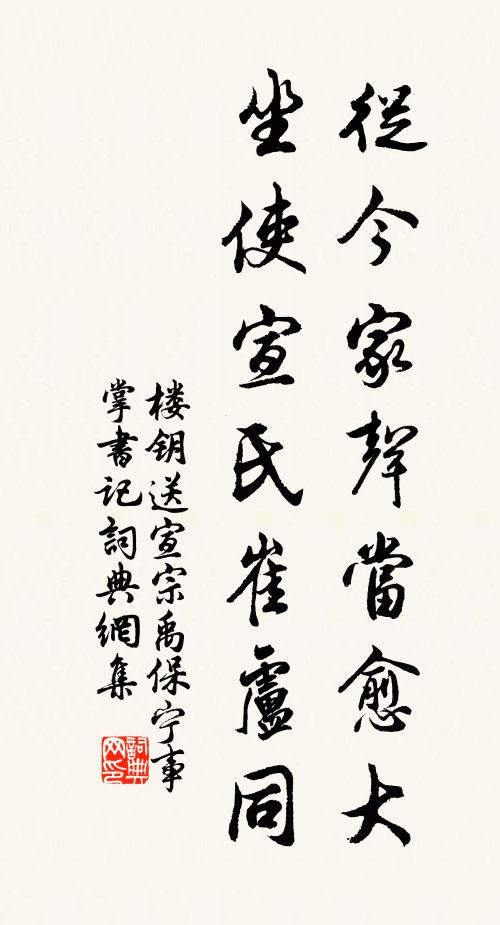 從今家聲當愈大
坐使宣氏崔盧同
楼钥送宣宗禹保宁事
掌書记詞典網集
詞典網印